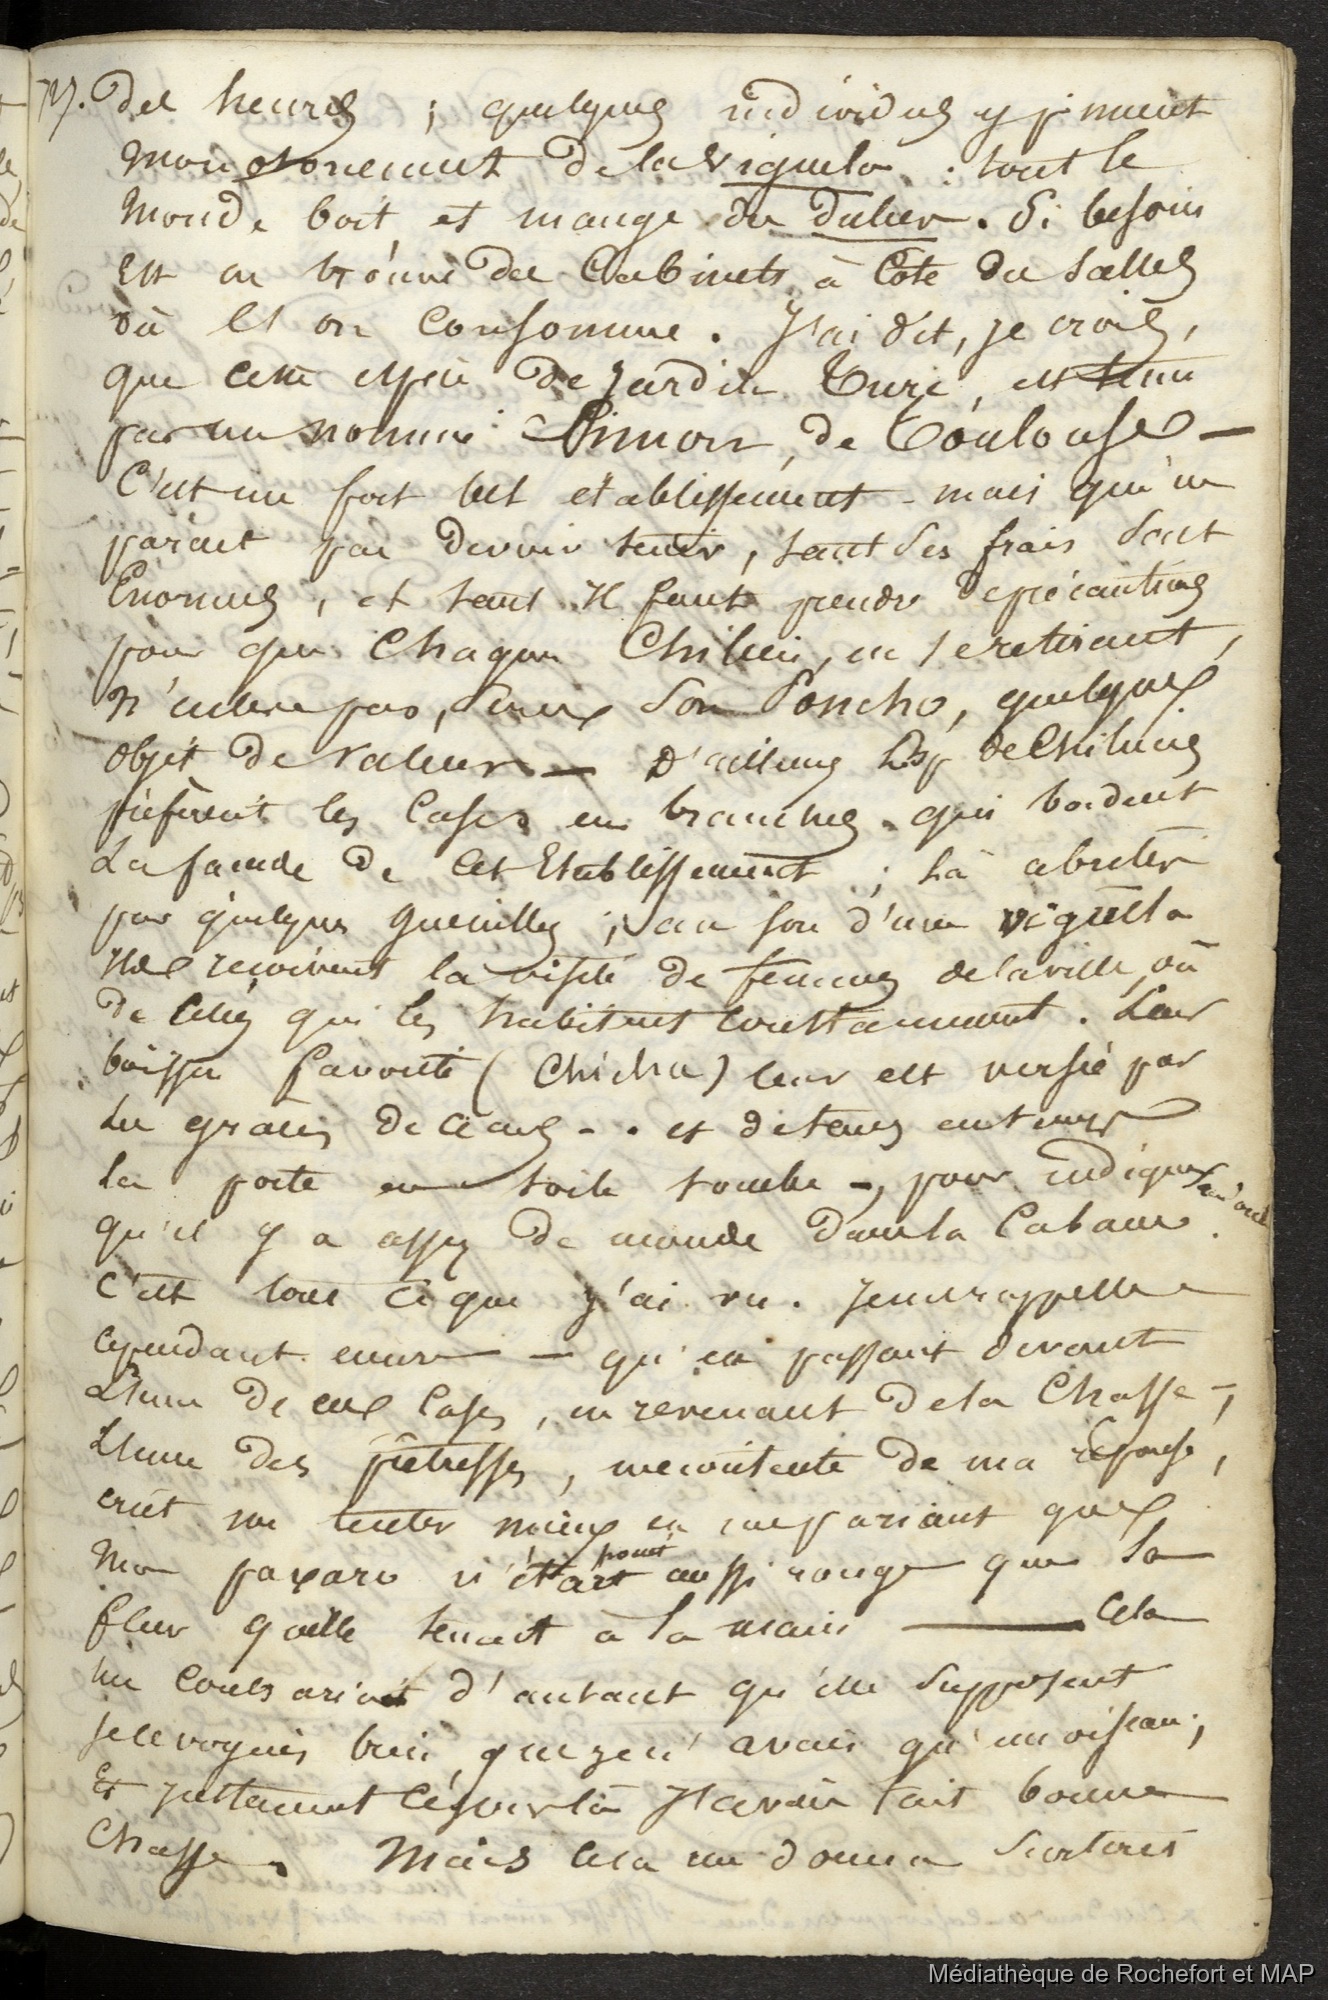 des heures ; quelques individus y jouent
monotonement de la viguela : tout le
monde boit et mange du dulcer. Si besoin
est on trouve des Cabinets à Côté des salles
où l'on Consomme. J'ai dit, je crois,
que cette espèce de jardin Turc, est tenu
par un nommé Simon, de Toulouse —
C'est un fort bel établissement - mais qui ne
parait pas devoir tenir, tant Ses frais Sont
Enormes, et tant il faut prendre de précautions
pour que Chaque Chilien, en se retirant,
n'enleve pas, Sous Son Poncho, quelque
objet de valeur — D'ailleurs bcp de Chiliens
préfèrent les Cases en branches qui bordent
La facade de Cet Etablissement ; Là abrités
par quelques guenilles ; au son d'une viguella
ils reçoivent la visite de femmes de la ville, ou
de celles qui les habitent Constamment. Leur
boisson favorite (Chicha) leur est versée par
les graces de Céans - . et de tems en temps
la porte en toile tombe -, pour indiquer
qu'il y a assez de monde dans la Cabane.
C'est tout ce que j'ai vu. Je me rappelle
cependant encore — qu'en passant devant
L'une de ces Cases, en revenant de la Chasse -,
L'une des prêtresses, mecontente de ma réponse,
crut me tenter mieux en me pariant que
mon paxaro n'était point aussi rouge que la
fleur qu'elle tenait à la main — Cela
me Contrariait d'autant qu'elle Supposait
je le voyais bien, que je n'avais qu'un oiseau ;
Et justement Ce jour là J'avais fait bonne
Chasse. Mais Cela me donna